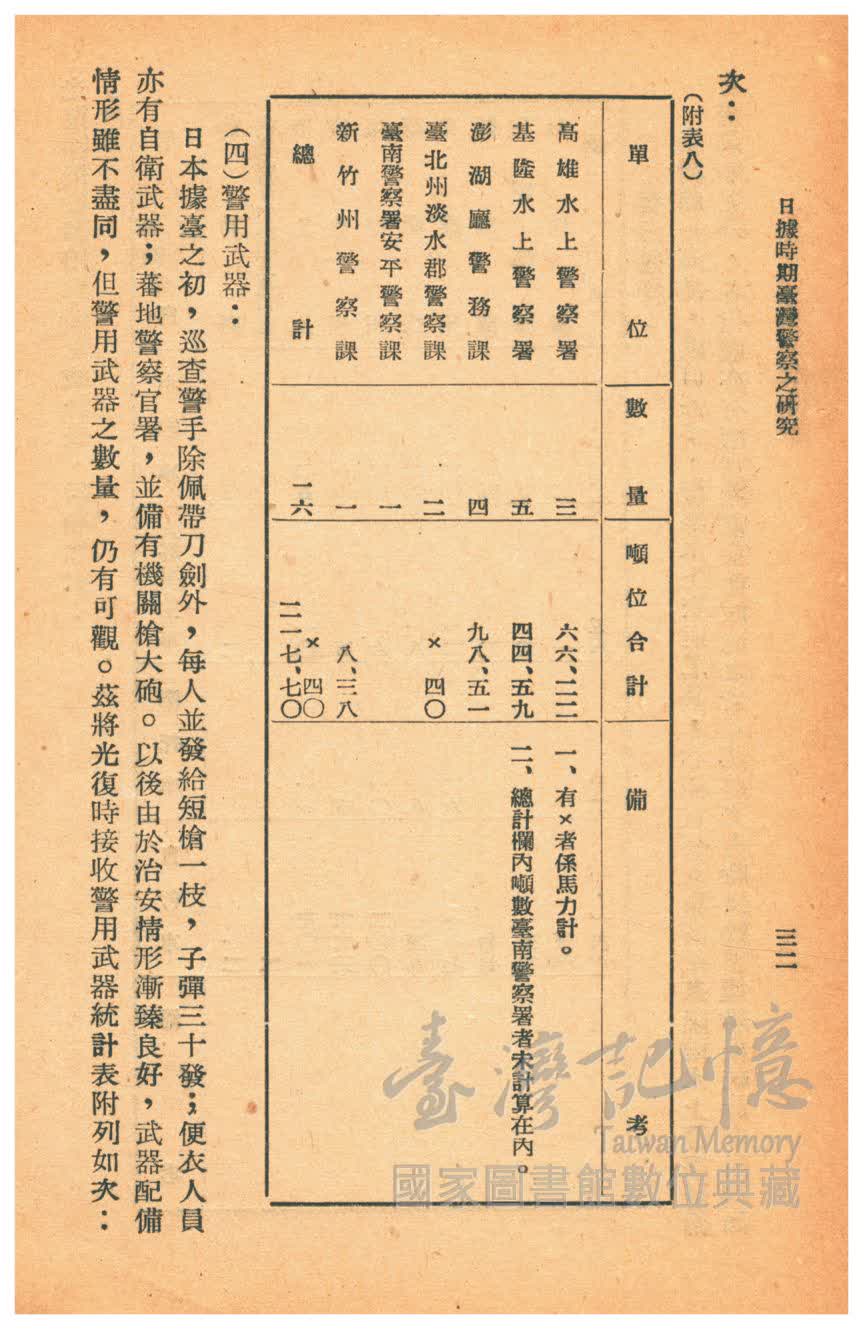 日據時期臺灣警察之研究　三二
次：
（附表八）
單位　數量　噸位合計　備考
高雄水上警察署　三　六六、二二　一、有×者係馬力計。
基隆水上警察署　五　四四、五九　二、總計欄內噸數臺南警察署者未計算在內。
澎湖廳警務課　四　九八、五一
臺北州淡水郡警察課　二　×四〇
臺南警察署安平警察課　一
新竹州警察課　一　八、三八
總計　一六　×四〇　二一七、七〇
（四）警用武器：
日本據臺之初，巡查警手除佩帶刀劍外，每人並發給短槍一枝，子彈三十發；便衣人員
亦有自衛武器；蕃地警察官署，並備有機關槍大砲。以後由於治安情形漸臻良好，武器配備
情形雖不盡同，但警用武器之數量，仍有可觀。茲將光復時接收警用武器統計表附列如次：
臺灣記憶
Taiwan Memory
國家圖書館數位典藏